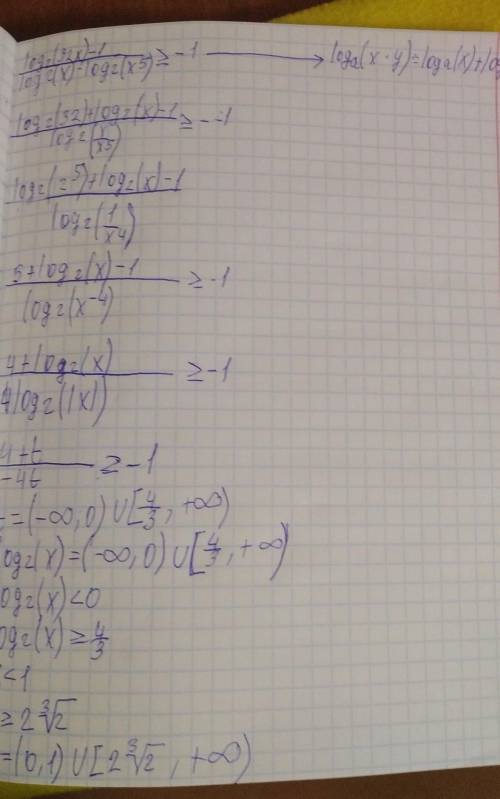 log₂(32x)-1 / log₂(x)-log₂(x5) ≥ -1 → logₐ(x·y)=logₐ(x)+log
log₂(32)+log₂(x)-1 / log₂(x/x5) ≥ -1
log₂(2⁵)+log₂(x)-1 / log₂(1/x4)
5+log₂(x)-1 / log₂(x⁻⁴) ≥ -1
4+log₂(x) / 4log₂(|x|) ≥ -1
4+t / -4t ≥ -1
=(-∞,0)∪[4/3,+∞)
log₂(x)=(-∞,0)∪[4/3,+∞)
log₂(x)<0
log₂(x)≥4/3
<1
≥2∛2
=(0,1)∪[2∛2,+∞)